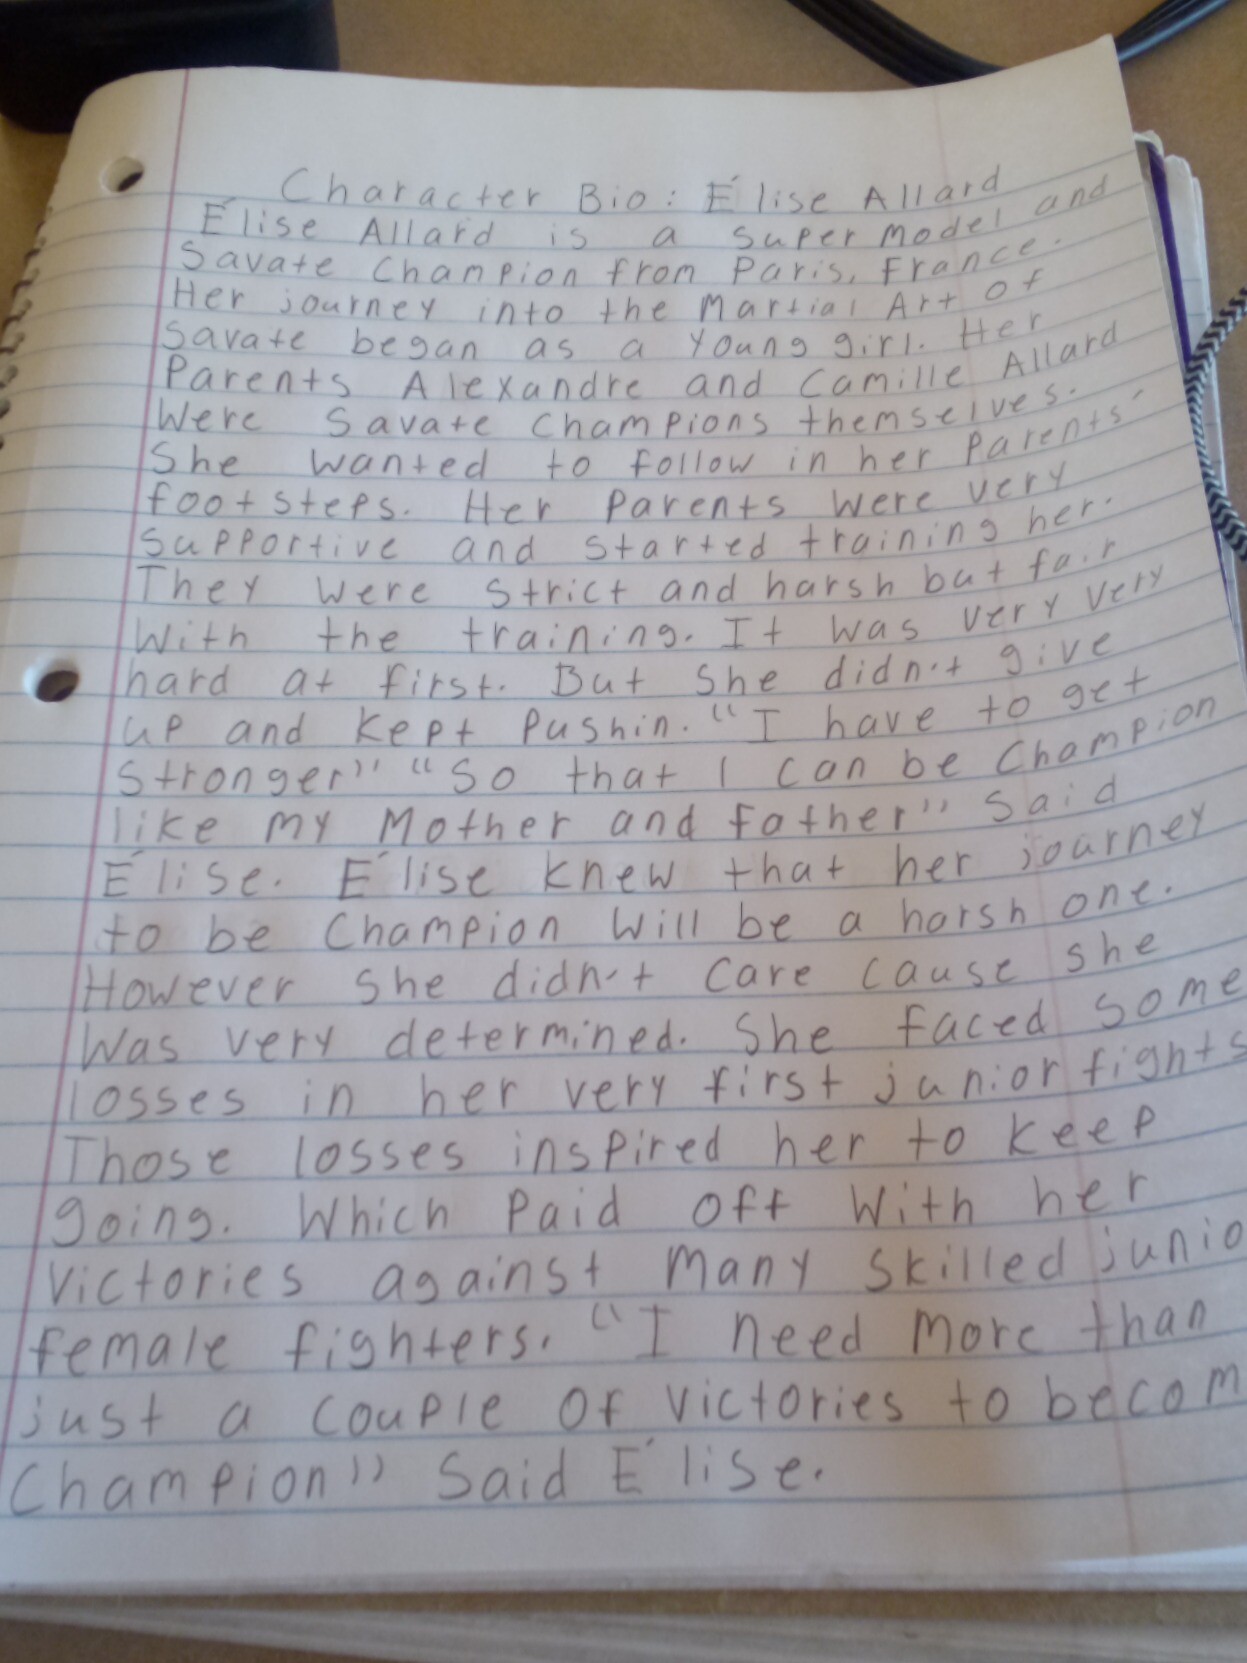 Character Bio: Élise Allard
Élise Allard is a super Model and
Savate Champion from Paris, France.
Her journey into the Martial Art of
Savate began as a young girl. Her
Parents Alexandre and Camille Allard
Were Savate Champions themselves.
She wanted to follow in her Parents'
footsteps. Her Parents were very
supportive and started training her.
They were strict and harsh but fair
With the training. It was very very
hard at first. But she didn't give
up and kept Pushin. "I have to get
stronger" "So that I can be Champion
like my Mother and father" Said
Élise. Élise knew that her journey
to be Champion Will be a harsh one.
However she didn't care cause she
Was very determined. She faced some
losses in her very first junior fights
Those losses inspired her to keep
going. Which Paid off With her
Victories against Many skilled junio
female fighters. "I need More than
just a couple of victories to becom
Champion" Said Élise.